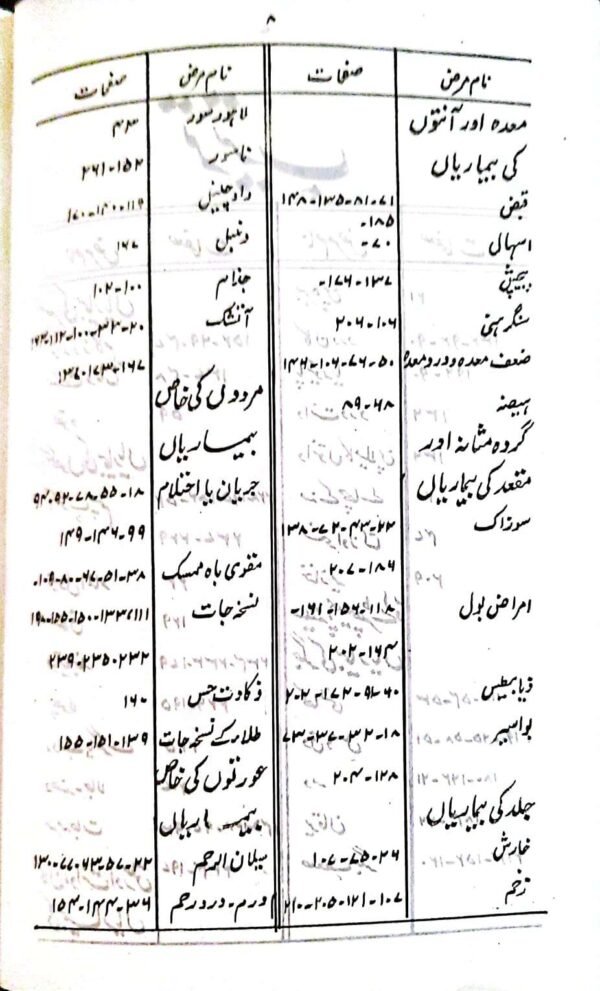 ۸
نام مرض صفحات
معدہ اور آنتوں
کی بیماریاں
قبض ۷۱-۸۱-۱۳۵-۱۴۸
-۱۸۵
اسہال ۷۰-
پیچش ۱۳۷-۱۷۶-
سنگرہنی ۱۰۶-۲۰۶
ضعف معدہ و درد معدہ ۵۰-۷۶-۱۰۶-۱۴۶
ہیضہ ۶۸-۸۹
گردہ مثانہ اور
مقعد کی بیماریاں
سوزاک ۲۲-۴۳-۷۲-۱۳۸
۱۸۶-۲۰۷
امراض بول ۱۱۸-۱۵۶-۱۶۱-
۱۶۴-۲۰۲
ذیابیطیس ۶۰-۹۱-۱۷۲-۲۰۲
بواسیر ۱۸-۳۲-۳۷-۷۳
۱۲۸-۲۰۴
جلد کی بیماریاں
خارش ۲۶-۷۵-۱۰۷
زخم ۱۰۷-۱۲۱-۲۰۵-۲۱۰
نام مرض صفحات
لاہور سور ۴۳
ناسور ۱۵۲-۲۶۱
داد چنبل ۱۱۹-۱۴۰-۱۷۰
دنبل ۱۶۷
جذام ۱۰۰-۱۰۲
آتشک ۲۰-۳۳-۱۰۰-۱۱۲-
۱۶۷-۱۷۳-۱۳۷
مردوں کی خاص
بیماریاں
جریان یا احتلام ۱۸-۵۵-۷۸-۹۲-۹۴
۹۹-۱۴۶-۱۴۹
مقوی باہ ممسک ۳۸-۵۱-۶۷-۸۰-۱۰۹-
نسخہ جات ۱۱۱-۱۳۳-۱۵۰-۱۵۵-۱۹۰
۲۳۲-۲۳۵-۲۳۹
ذکاوت حس ۱۶۰
طلاء کے نسخہ جات ۱۳۹-۱۵۱-۱۵۵
عورتوں کی خاص
بیماریاں
سیلان الرحم ۲۲-۵۷-۶۳-۷۷-۱۳۰
ورم - درد رحم ۳۶-۱۴۴-۱۵۴